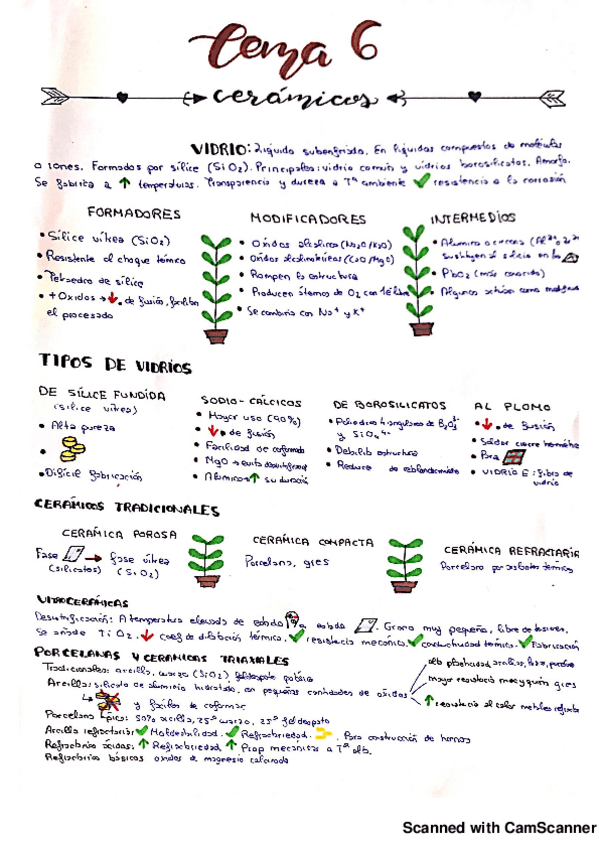 tema 6
cerámicos
VIDRIO: líquido subenfriado. En líquidos compuestos de moléculas
o iones. Formados por sílice (SiO2). Principales: vidrio común y vidrios borosilicatos. Amorfo.
Se fabrica a temperaturas. Transparencia y dureza a Tª ambiente resistencia a la corrosión
FORMADORES
• Sílice vítrea (SiO2)
• Resistente al choque térmico
• Tetraedro de sílice
• + Oxidos → . de fusión, facilita
el procesado
MODIFICADORES
• Oxidos alcalinos (Na2O/K2O)
• Oxidos alcalinotérreos (CaO/MgO)
• Rompen la estructura
• Producen átomos de O2 con 1é libre
• Se combina con Na+ y K+
INTERMEDIOS
• Alumina o
Sustituyen al silicio en la
• PbO2 (más conocido)
• Algunos actúan como
TIPOS DE VIDRIOS
DE SÍLICE FUNDIDA
(sílice vítrea)
• Alta pureza
•
• Difícil fabricación
SODIO-CÁLCICOS
• Mayor uso (90%)
• . de fusión
• Facilidad de conformado
• MgO → evita
• Alumina su duración
DE BOROSILICATOS
• triangulares de
y SiO4 4-
• Debilita estructura
• Reduce . reblandecimiento
AL PLOMO
• . de fusión
• Soldar cierre hermético
• Para
• VIDRIO E: fibra de
vidrio
CERÁMICOS TRADICIONALES
CERÁMICA POROSA
Fase → fase vítrea
(silicatos) (SiO2)
CERÁMICA COMPACTA
Porcelana, gres
CERÁMICA REFRACTARIA
Porcelana para térmico
VITROCERÁMICAS
Desvitrificación: A temperatura elevada de estado a estado . Grano muy pequeño, libre de
Se añade TiO2. coef de dilatación térmico. resistencia mecánica. conductividad térmica. Fabricación
PORCELANAS Y CERÁMICAS TRIAXIALES
Tradicionales: arcilla, cuarzo (SiO2) feldespato potásico
Arcilla: silicato de aluminio hidratado, en pequeñas cantidades de óxidos
alta plasticidad arcillas,
mayor resistencia mecánica gres
resistencia al calor
y fáciles de conformar
Porcelana típica: 50% arcilla, 25% cuarzo, 25% feldespato
Arcilla refractaria: Moldeabilidad. Refractariedad. . Para construcción de hornos
Refractarios ácidos: Refractariedad, Prop mecánicas a Tª alta.
Refractarios básicos oxidos de magnesio calcinado
Scanned with CamScanner